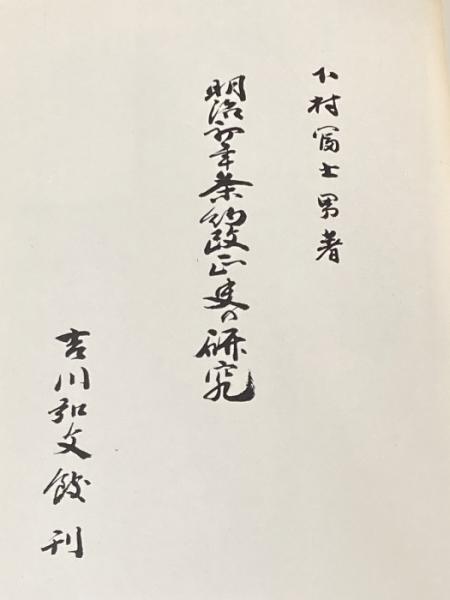 下村冨士男著
明治初年条約改正史の研究
吉川弘文館刊